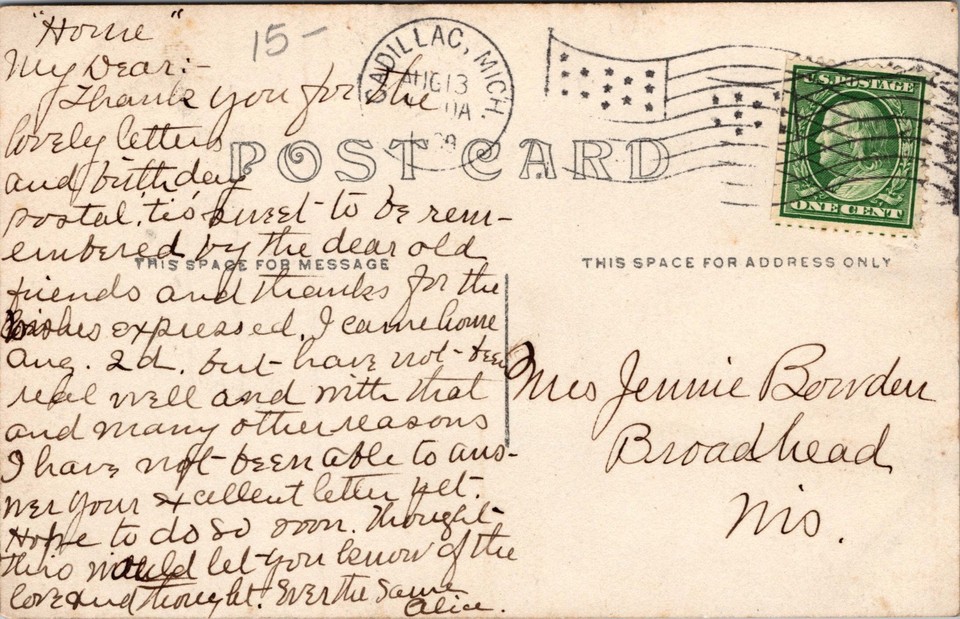 "Home"
15-
My Dear:-
Thank you for the
lovely letter
and birthday
postal. tis sweet to be rem-
embered by the dear old
friends and thanks for the
wishes expressed. I came home
Aug. 2d. but have not been
real well and with that
and many other reasons
I have not been able to ans-
wer your excellent letter yet.
Hope to do so soon. Thought
this would let you know of the
love and thought. Ever the same
Alice.
CADILLAC, MICH.
AUG 13
POST CARD
THIS SPACE FOR MESSAGE
THIS SPACE FOR ADDRESS ONLY
U.S. POSTAGE
ONE CENT
Mrs Jennie Bowden
Broadhead
Wis.